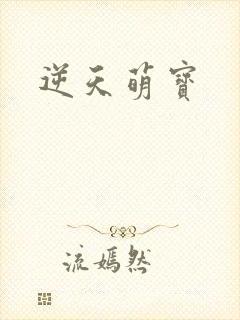 逆天萌寶
流嫣然